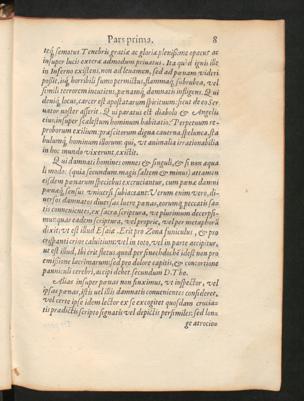 Pars prima. 8
itaq; semotus Tenebris gratiæ ac gloriæ plenissime opacus ac
insuper lucis exteræ admodum priuatus. Ita quod ignis ille
in Inferno existens, non ad leuamen, sed ad pœnam videri
possit, iuq; horribili fumo permistus, flammaq; subrubea, vel
simili terrorem incutiens, pœnamq; damnatis infligens. Qui
deniq; locus, carcer est apostatarum spirituum: sicut de eo Ser
uator noster asserit. Qui paratus est diabolo & Angelis
eius, insuper scelestum hominum habitatio. Perpetuum re-
proborum exilium. præscitorum digna cauerna, spelunca, sta
bulumq; hominum illorum: qui, vt animalia irrationabilia
in hoc mundo vixerunt, existit.
Qui damnati homines omnes & singuli, & si non æqua
li modo: (quia secundum magis saltem & minus) attamen
eisdem pœnarum speciebus excruciantur, cum pœna damni
pœnaq; sensus vniuersi subiaceant: Verum enim vero, di-
uersos damnatos diuersas luere pœnas, eorumq; peccatis sa-
tis connenientes, ex sacra scriptura, vt plurimum decerpsi-
mus: quæ eadem scriptura, vel proprie, vel per metaphoram
dixit: vt est illud Esaiæ. Erit pro Zona funiculus, & pro
crispanti crine caluitium: vel in toto, vel in parte accipitur,
ut est illud, ibi erit fletus: quod per sinecdochie idest non pro
emissione lacrimarum: sed pro dolore capitis, & concertione
panniculi cerebri, accipi debet secundum D. Tho.
Alias insuper pœnas non finximus, vt inspector, vel
ipsas pœnas, istis uel illis damnatis conuenientes consideret,
vel certe ipse idem lector ex se excogitet quosdam crucia-
tus prædictis scripto signatis vel depictis persimiles: sed lon-
ge atrocio